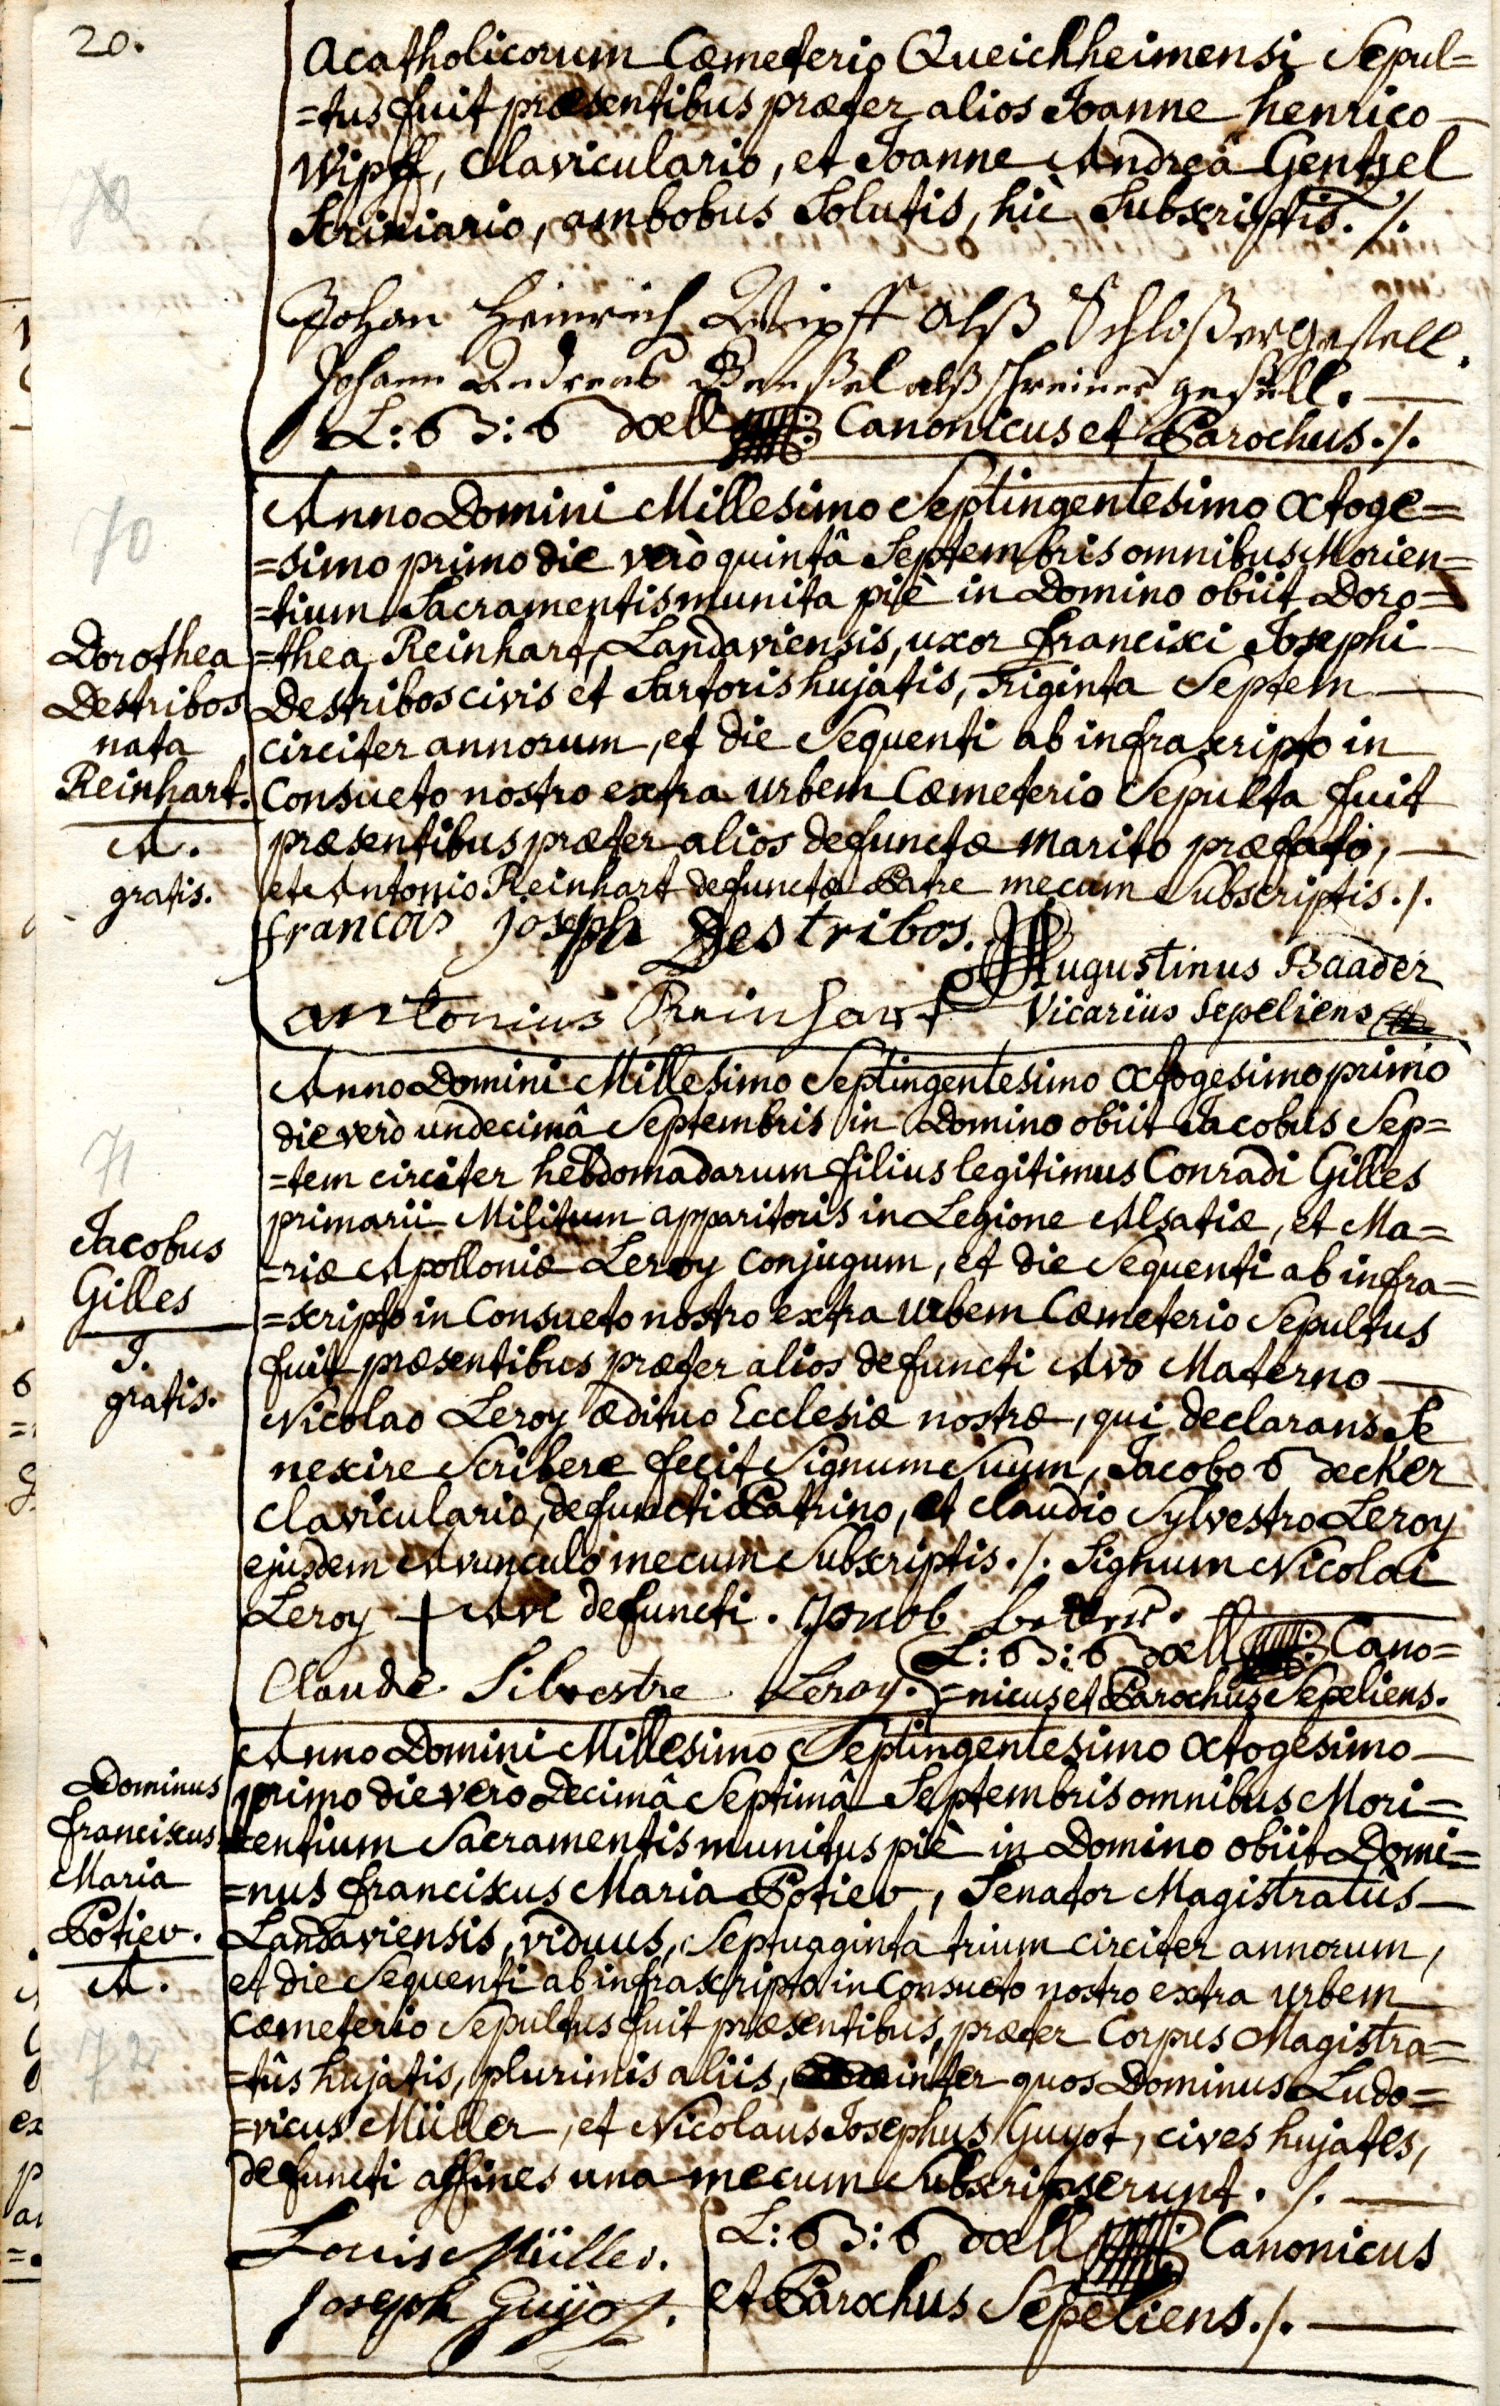 20.
Acatholicorum Cœmeterio Queichheimensi Sepul=
=tus fuit præsentibus præter alios Joanne henrico
Wipff, Claviculario, et Joanne Andreâ Gentzel
Scriniario, ambobus Solutis, hic Subscriptis. ./.
Johan Heinrich Wipff alß Schloßergesell.
Johann Andreas Gentzel alß schreiner gesell.
Canonicus et Parochus ./.
70
Anno Domini Millesimo Septingentesimo Octoge=
=simo primo die verò quintâ Septembris omnibus Morien=
=tium Sacramentis munita piè in Domino obiit Doro=
=thea Reinhart, Landaviensis, uxor francisci Josephi
Destribos civis et Sartoris hujatis, Triginta Septem
circiter annorum, et die Sequenti ab infrascripto in
Consueto nostro extra urbem Cœmeterio Sepulta fuit
præsentibus præter alios defunctæ marito præfato,
et Antonio Reinhart defunctæ Patre mecum Subscriptis ./.
Dorothea
Destribos
nata
Reinhart.
A.
gratis.
francois Joseph Destribos.
Augustinus Baader
antonius Reinhart
Vicarius Sepeliens
71
Anno Domini Millesimo Septingentesimo Octogesimo primo
die verò undecimâ Septembris in Domino obiit Jacobus Sep=
=tem circiter hebdomadarum filius legitimus Conradi Gilles
primarii Militum apparitoris in Legione Alsatiæ, et Ma=
=riæ Apolloniæ Leroy conjugum, et die Sequenti ab infra=
=scripto in Consueto nostro extra urbem Cœmeterio Sepultus
fuit præsentibus præter alios defuncti Avo Materno
Nicolao Leroy ædituo Ecclesiæ nostræ, qui declarans Se
nescire Scribere fecit Signum Suum, Jacobo decker
Claviculario, defuncti Patrino, et Claudio Sylvestro Leroy
ejusdem Avunculo mecum Subscriptis ./. Signum Nicolai
Leroy + Avi defuncti.
Jacobus
Gilles
J.
gratis.
Cano=
Claude Silvestre Leroy.
=nicus et Parochus Sepeliens.
Anno Domini Millesimo Septingentesimo Octogesimo
primo die verò Decimâ Septimâ Septembris omnibus Mori=
=entium Sacramentis munitus piè in Domino obiit Domi=
=nus franciscus Maria Potiev, Senator Magistratûs
Landaviensis, viduus, Septuaginta trium circiter annorum,
et die Sequenti ab infrascripto in Consueto nostro extra urbem
Cœmeterio Sepultus fuit præsentibus, præter Corpus Magistra=
=tûs hujatis, plurimis aliis, inter quos Dominus Ludo=
=vicus Müller, et Nicolaus Josephus Guyot, cives hujates,
defuncti affines una mecum Subscripserunt. ./.
Dominus
franciscus
Maria
Potiev.
A.
72
Louis Müller.
Joseph Guyot.
Canonicus
et Parochus Sepeliens ./.